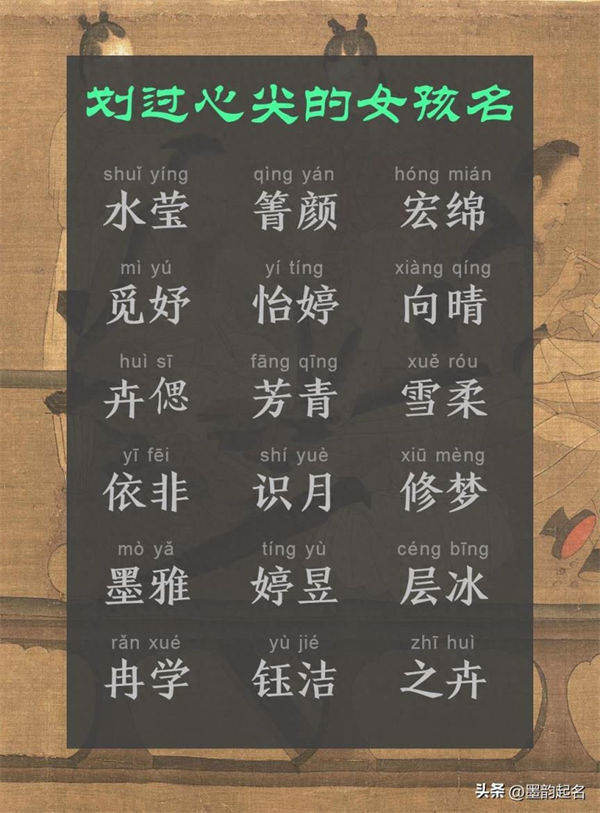 划过心尖的女孩名
shuǐ yíng qìng yán hóng mián
水莹 箐颜 宏绵
mì yú yí tíng xiàng qíng
觅妤 怡婷 向晴
huì sī fāng qīng xuě róu
卉偲 芳青 雪柔
yī fēi shí yuè xiū mèng
依非 识月 修梦
mò yǎ tíng yù céng bīng
墨雅 婷昱 层冰
rǎn xué yù jié zhī huì
冉学 钰洁 之卉
头条 @墨韵起名